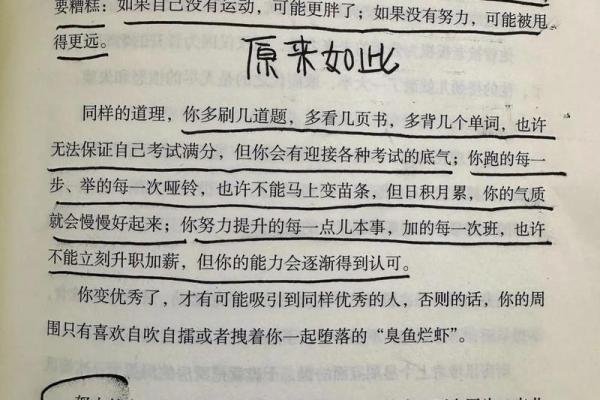 要糟糕：如果自己没有运动，可能更胖了；如果没有努力，可能被甩
得更远。
原来如此
同样的道理，你多刷几道题，多看几页书，多背几个单词，也许
无法保证自己考试满分，但你会有迎接各种考试的底气；你跑的每一
步、举的每一次哑铃，也许不能马上变苗条，但日积月累，你的气质
就会慢慢好起来；你努力提升的每一点儿本事，加的每一次班，也许
不能立刻升职加薪，但你的能力会逐渐得到认可。
你变优秀了，才有可能吸引到同样优秀的人，否则的话，你的周
围只有喜欢自吹自擂或者拽着你一起堕落的“臭鱼烂虾”。